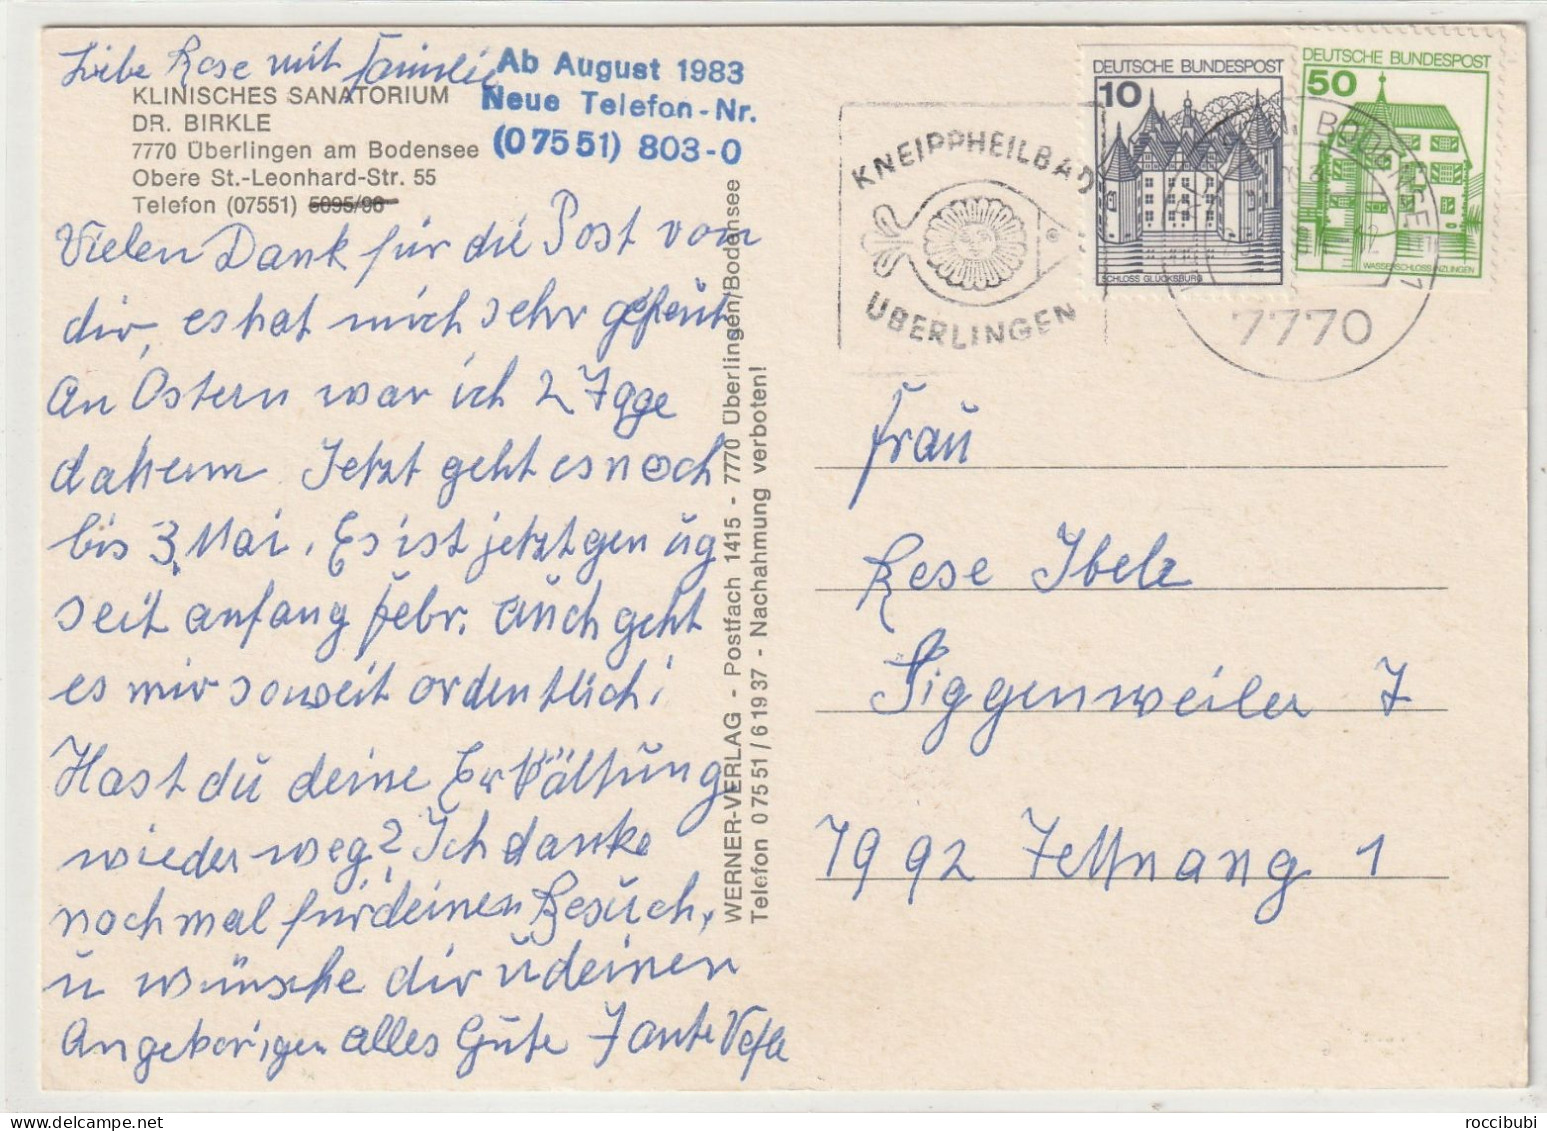 Liebe Rese mit Familie
Ab August 1983
Neue Telefon-Nr.
(07551) 803-0
KLINISCHES SANATORIUM
DR. BIRKLE
7770 Überlingen am Bodensee
Obere St.-Leonhard-Str. 55
Telefon (07551) 5095/96
Vielen Dank für die Post von
dir, es hat mich sehr gefreut
An Ostern war ich 2 Tage
daheim Jetzt geht es noch
bis 3. Mai. Es ist jetzt gen ug
seit anfang Febr. auch geht
es mir soweit ordentlich;
Hast du deine Erkältung
wieder weg? Ich danke
nochmal für deinen Besuch,
u wünsche dir u deinen
Angehörigen alles Gute Tante
WERNER-VERLAG - Postfach 1415 - 7770 Überlingen/Bodensee
Telefon 07551/61937 - Nachahmung verboten!
KNEIPPHEILBAD
ÜBERLINGEN
DEUTSCHE BUNDESPOST
10
SCHLOSS GLÜCKSBURG
DEUTSCHE BUNDESPOST
50
WASSERSCHLOSS INZLINGEN
7770
Frau
Rese Ibele
Siggenweiler 7
7992 Tettnang 1
roccibubi